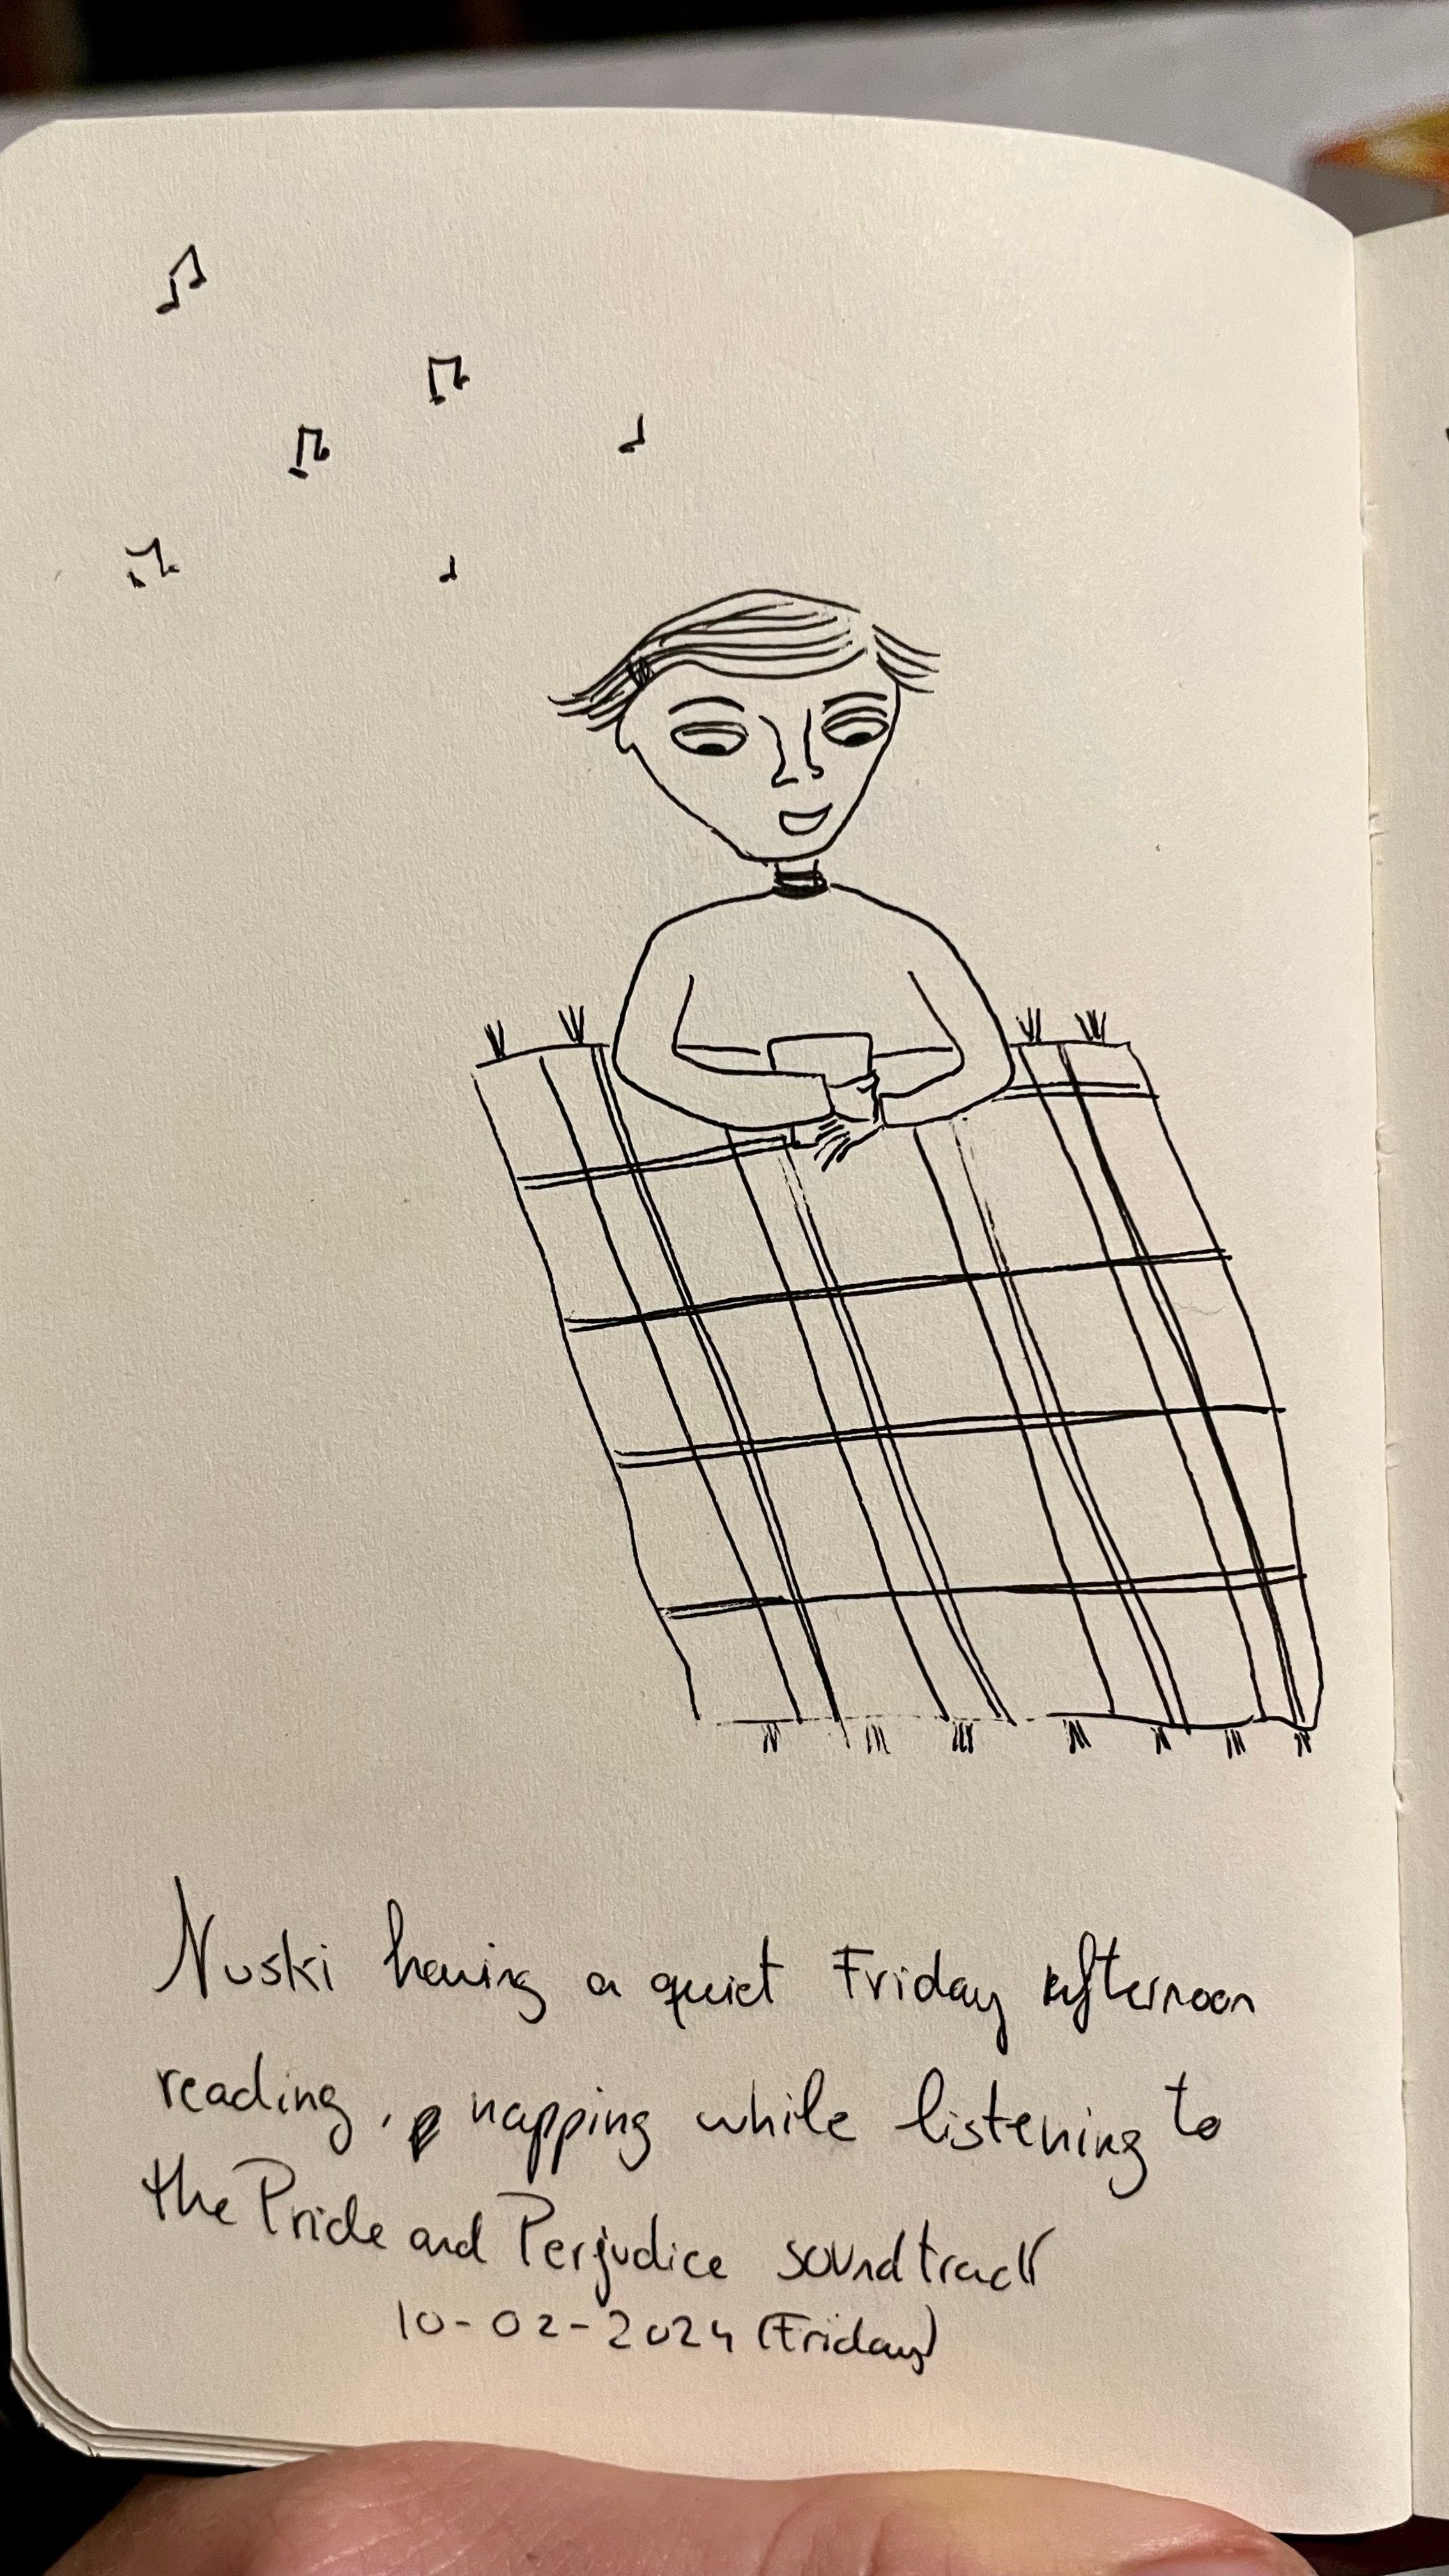 Nuski having a quiet Friday afternoon
reading, napping while listening to
the Pride and Perjudice soundtrack
10-02-2024 (Friday)